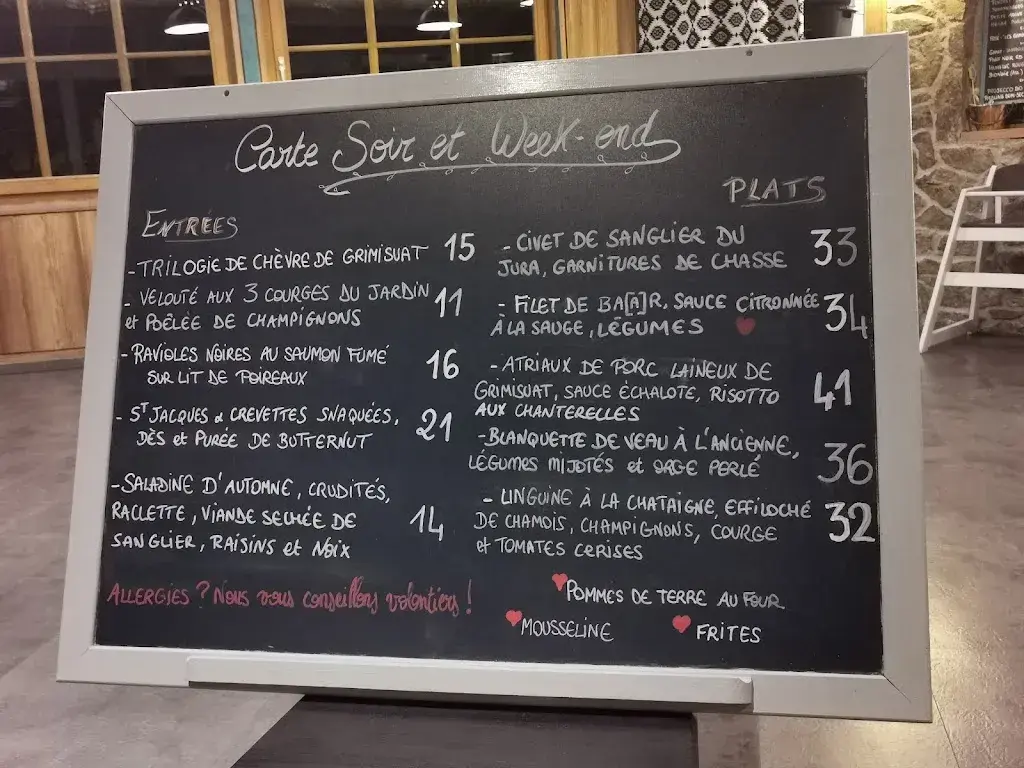 Carte Soir et Week-end
ENTRÉES
- TRILOGIE DE CHÈVRE DE GRIMISUAT 15
- VELOUTÉ AUX 3 COURGES DU JARDIN
et POÊLÉE DE CHAMPIGNONS 11
- RAVIOLES NOIRES AU SAUMON FUMÉ
SUR LIT DE POIREAUX 16
- ST JACQUES & CREVETTES SNAQUÉES,
DÈS et PURÉE DE BUTTERNUT 21
- SALADINE D'AUTOMNE, CRUDITÉS,
RACLETTE, VIANDE SECHÉE DE
SANGLIER, RAISINS et NOIX 14
ALLERGIES ? Nous vous conseillons volontiers !
PLATS
- CIVET DE SANGLIER DU
JURA, GARNITURES DE CHASSE 33
- FILET DE BA[A]R, SAUCE CITRONNÉE
À LA SAUGE, LÉGUMES 34
- ATRIAUX DE PORC LAINEUX DE
GRIMISUAT, SAUCE ÉCHALOTE, RISOTTO
AUX CHANTERELLES 41
- BLANQUETTE DE VEAU À L'ANCIENNE,
LÉGUMES MIJOTÉS et ORGE PERLÉ 36
- LINGUINE À LA CHATAIGNE, EFFILOCHÉ
DE CHAMOIS, CHAMPIGNONS, COURGE
et TOMATES CERISES 32
POMMES DE TERRE AU FOUR
MOUSSELINE
FRITES